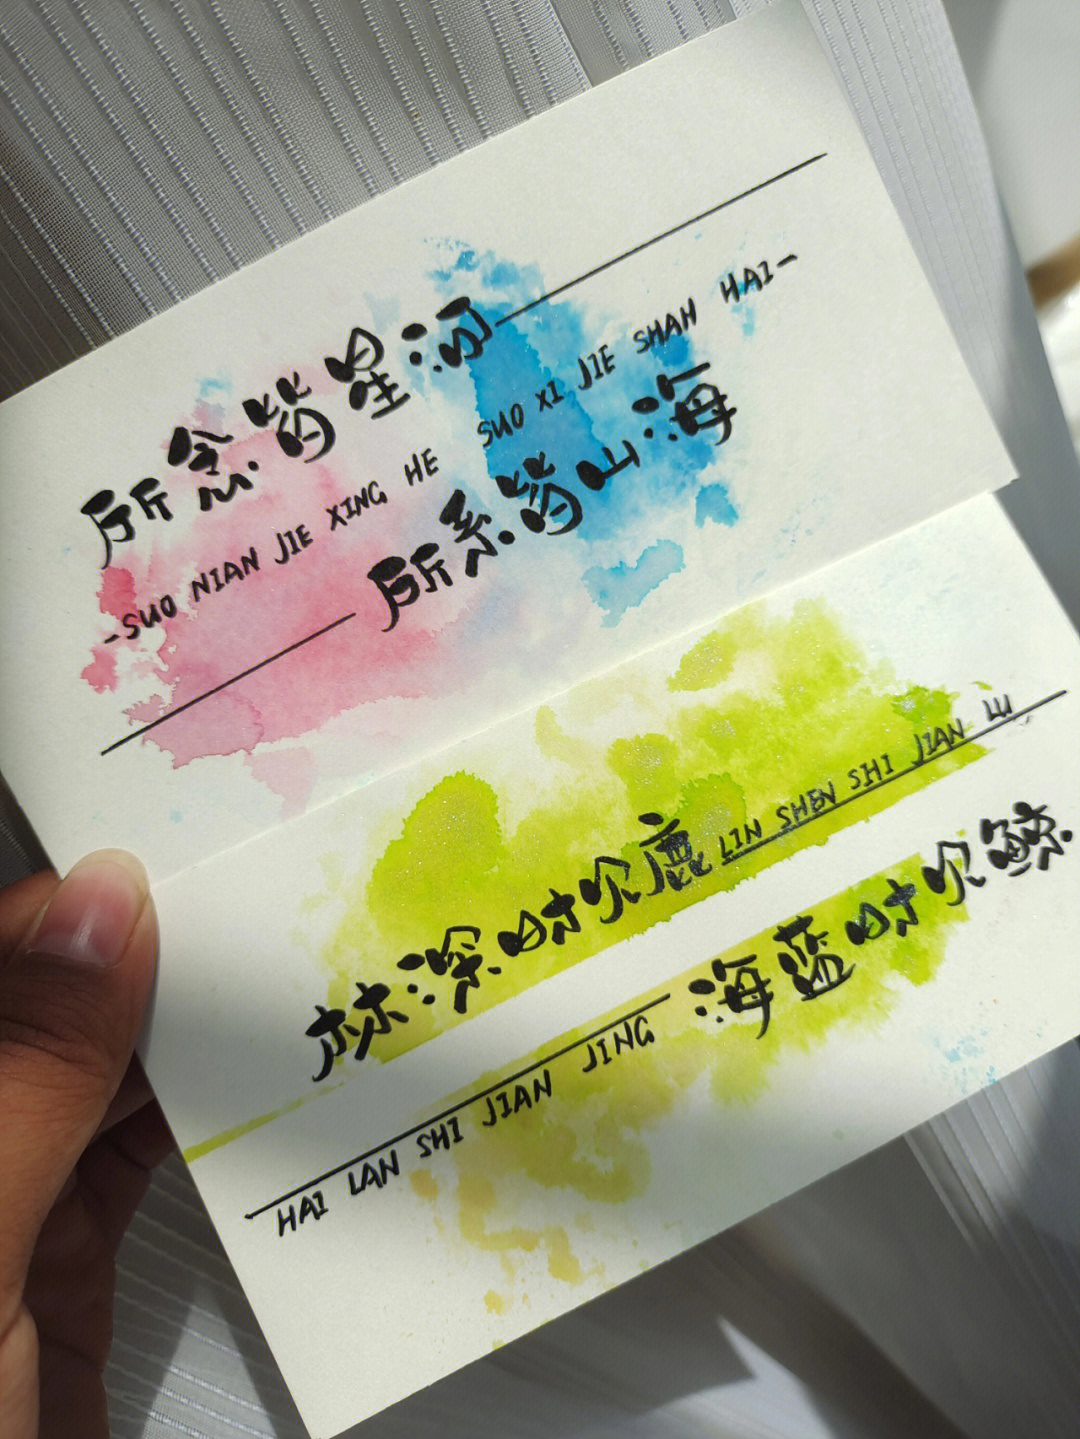 所念皆星河
-SUO NIAN JIE XING HE SUO XI JIE SHAN HAI-
所系皆山海
林深时见鹿 LIN SHEN SHI JIAN LU
海蓝时见鲸
HAI LAN SHI JIAN JING